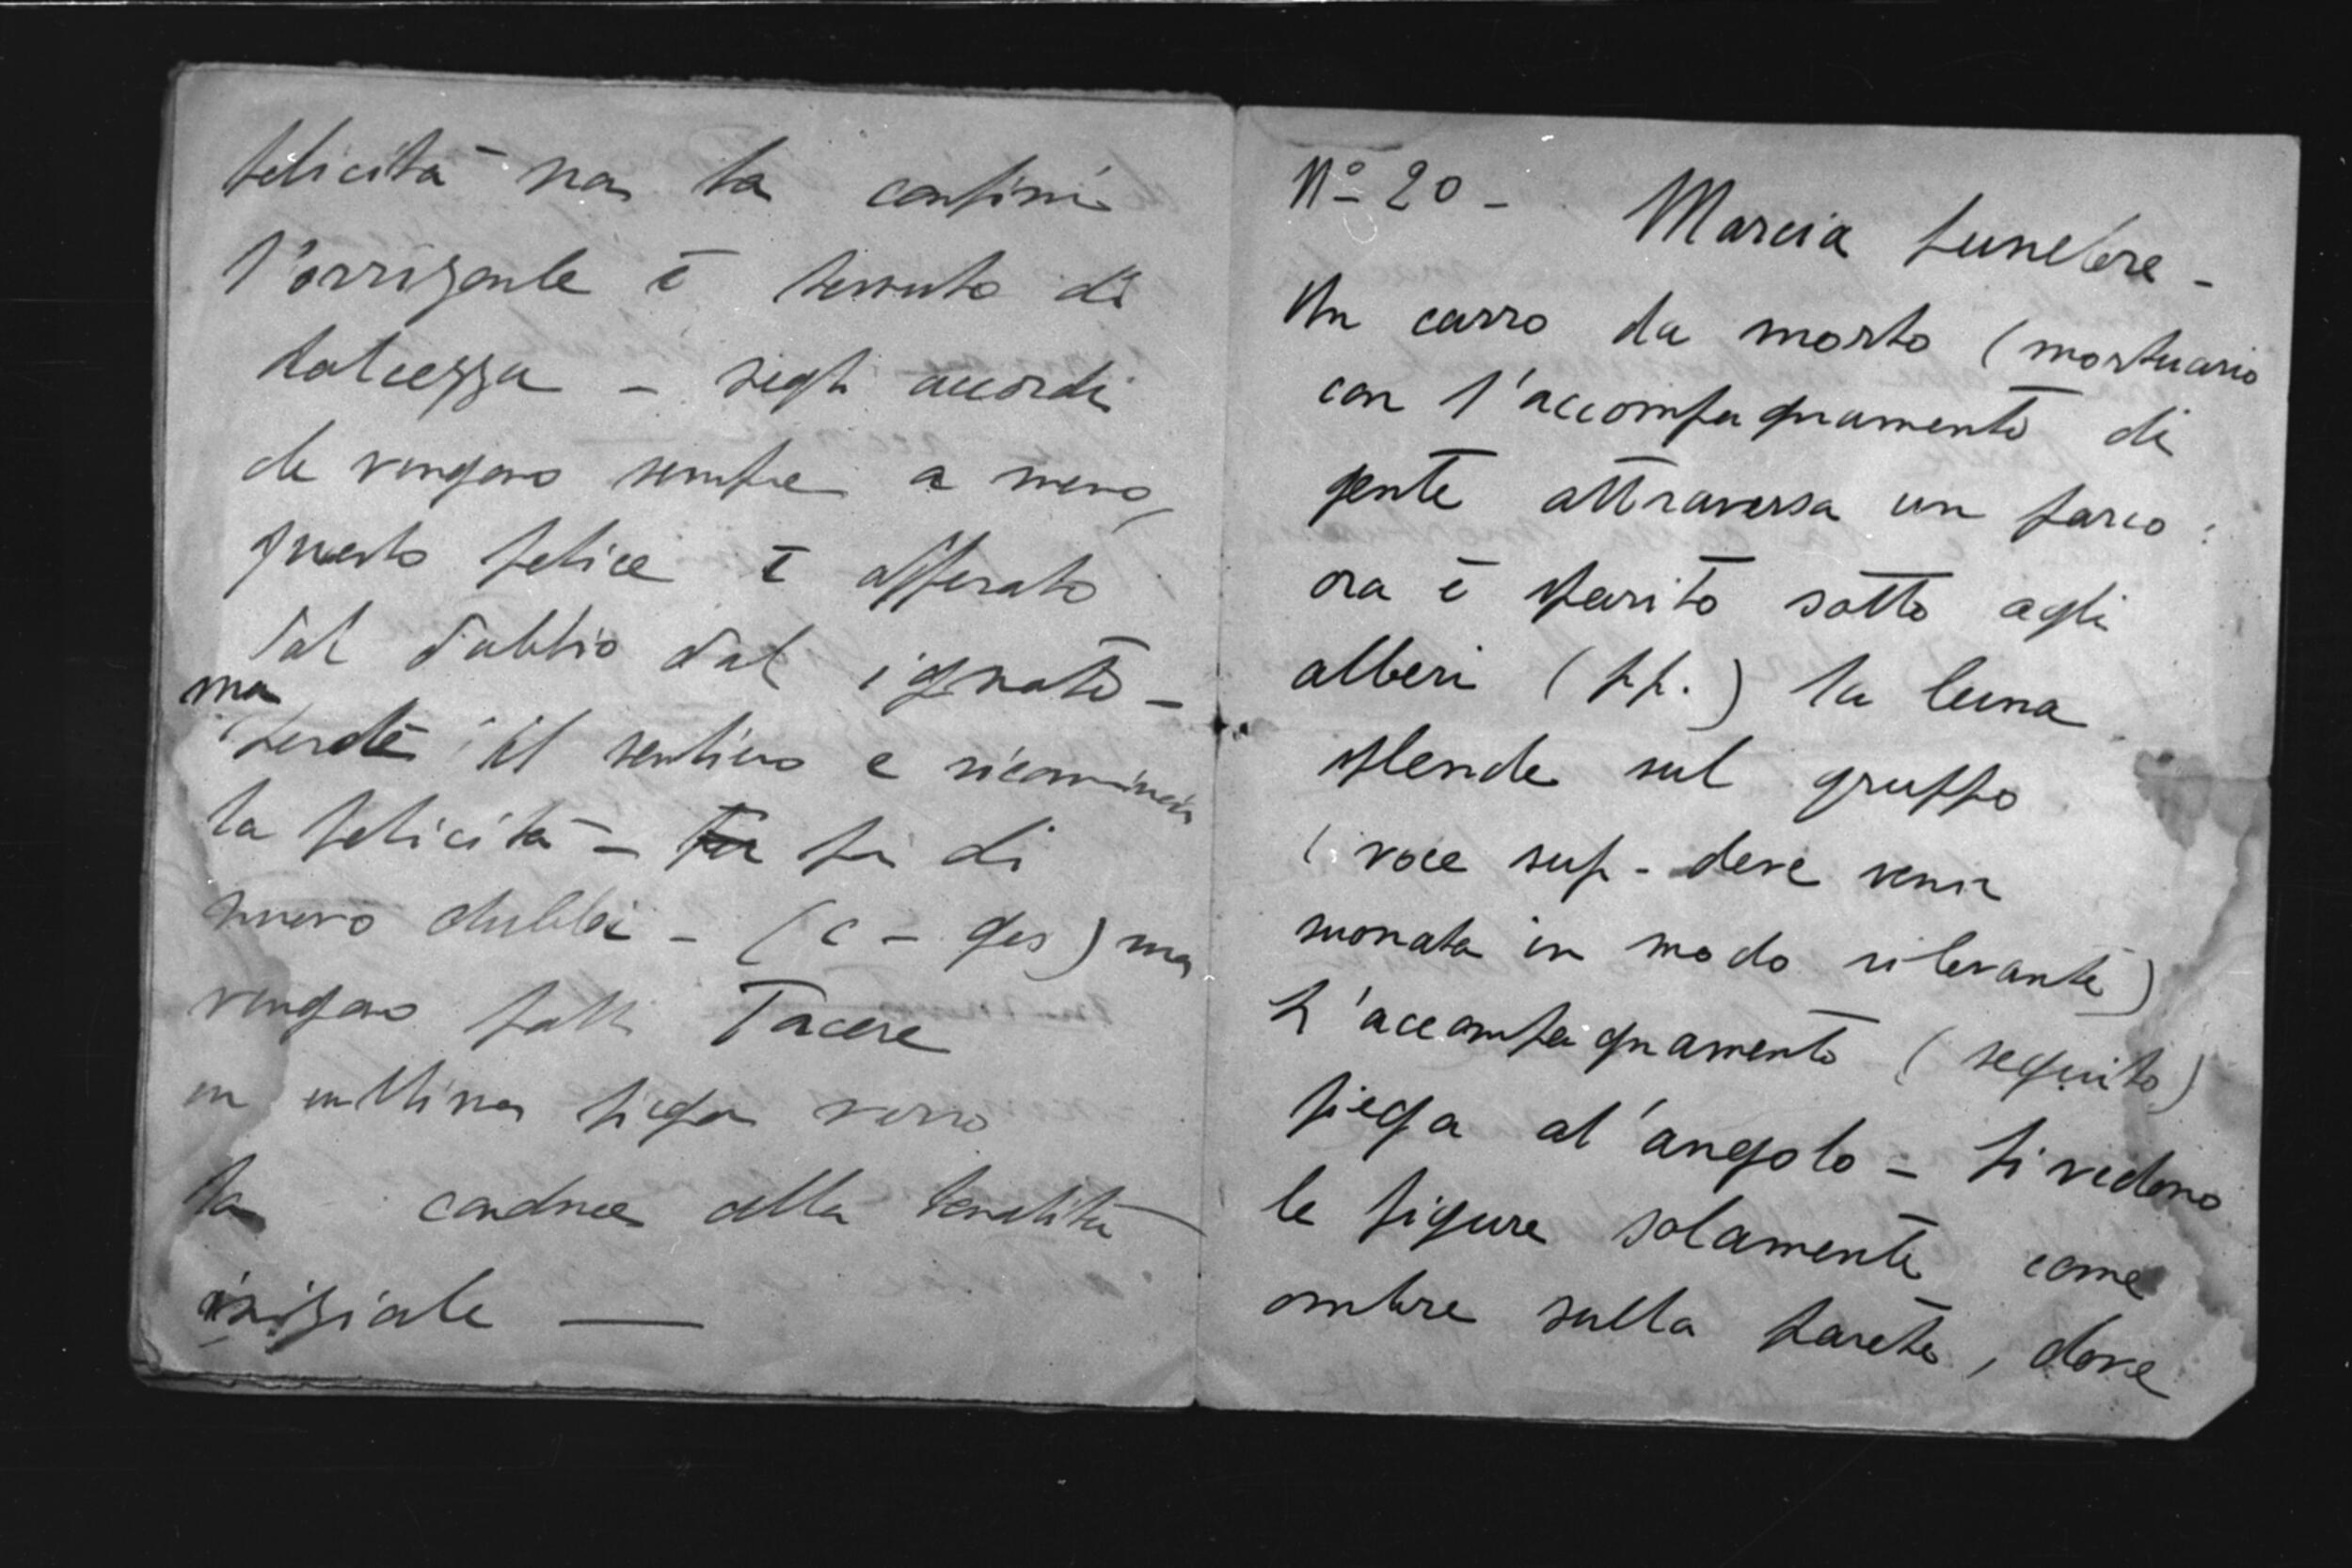 felicità non ha confini
l'orrizonte è tessuto di
dolcezza - negli accordi
che vengono sempre a meno,
questo felice è afferato
dal dubbio dal ignoto -
ma
perde il sentiero e ricomincia
la felicità - fu di
nuovo dubbi - (c - ges) ma
vengono fatti Tacere
un ultima piega verso
la conduce alla
iniziale —
No 20 - Marcia funebre -
Un carro da morto (mortuario
con l'accompagnamento di
gente attraversa un parco :
ora è sparito sotto agli
alberi (pp.) la luna
splende sul gruppo
(voce sup - deve venir
suonata in modo rilevante)
L'accompagnamento (seguito)
piega al'angolo - si vedono
le figure solamente come
ombre sulla parete, dove